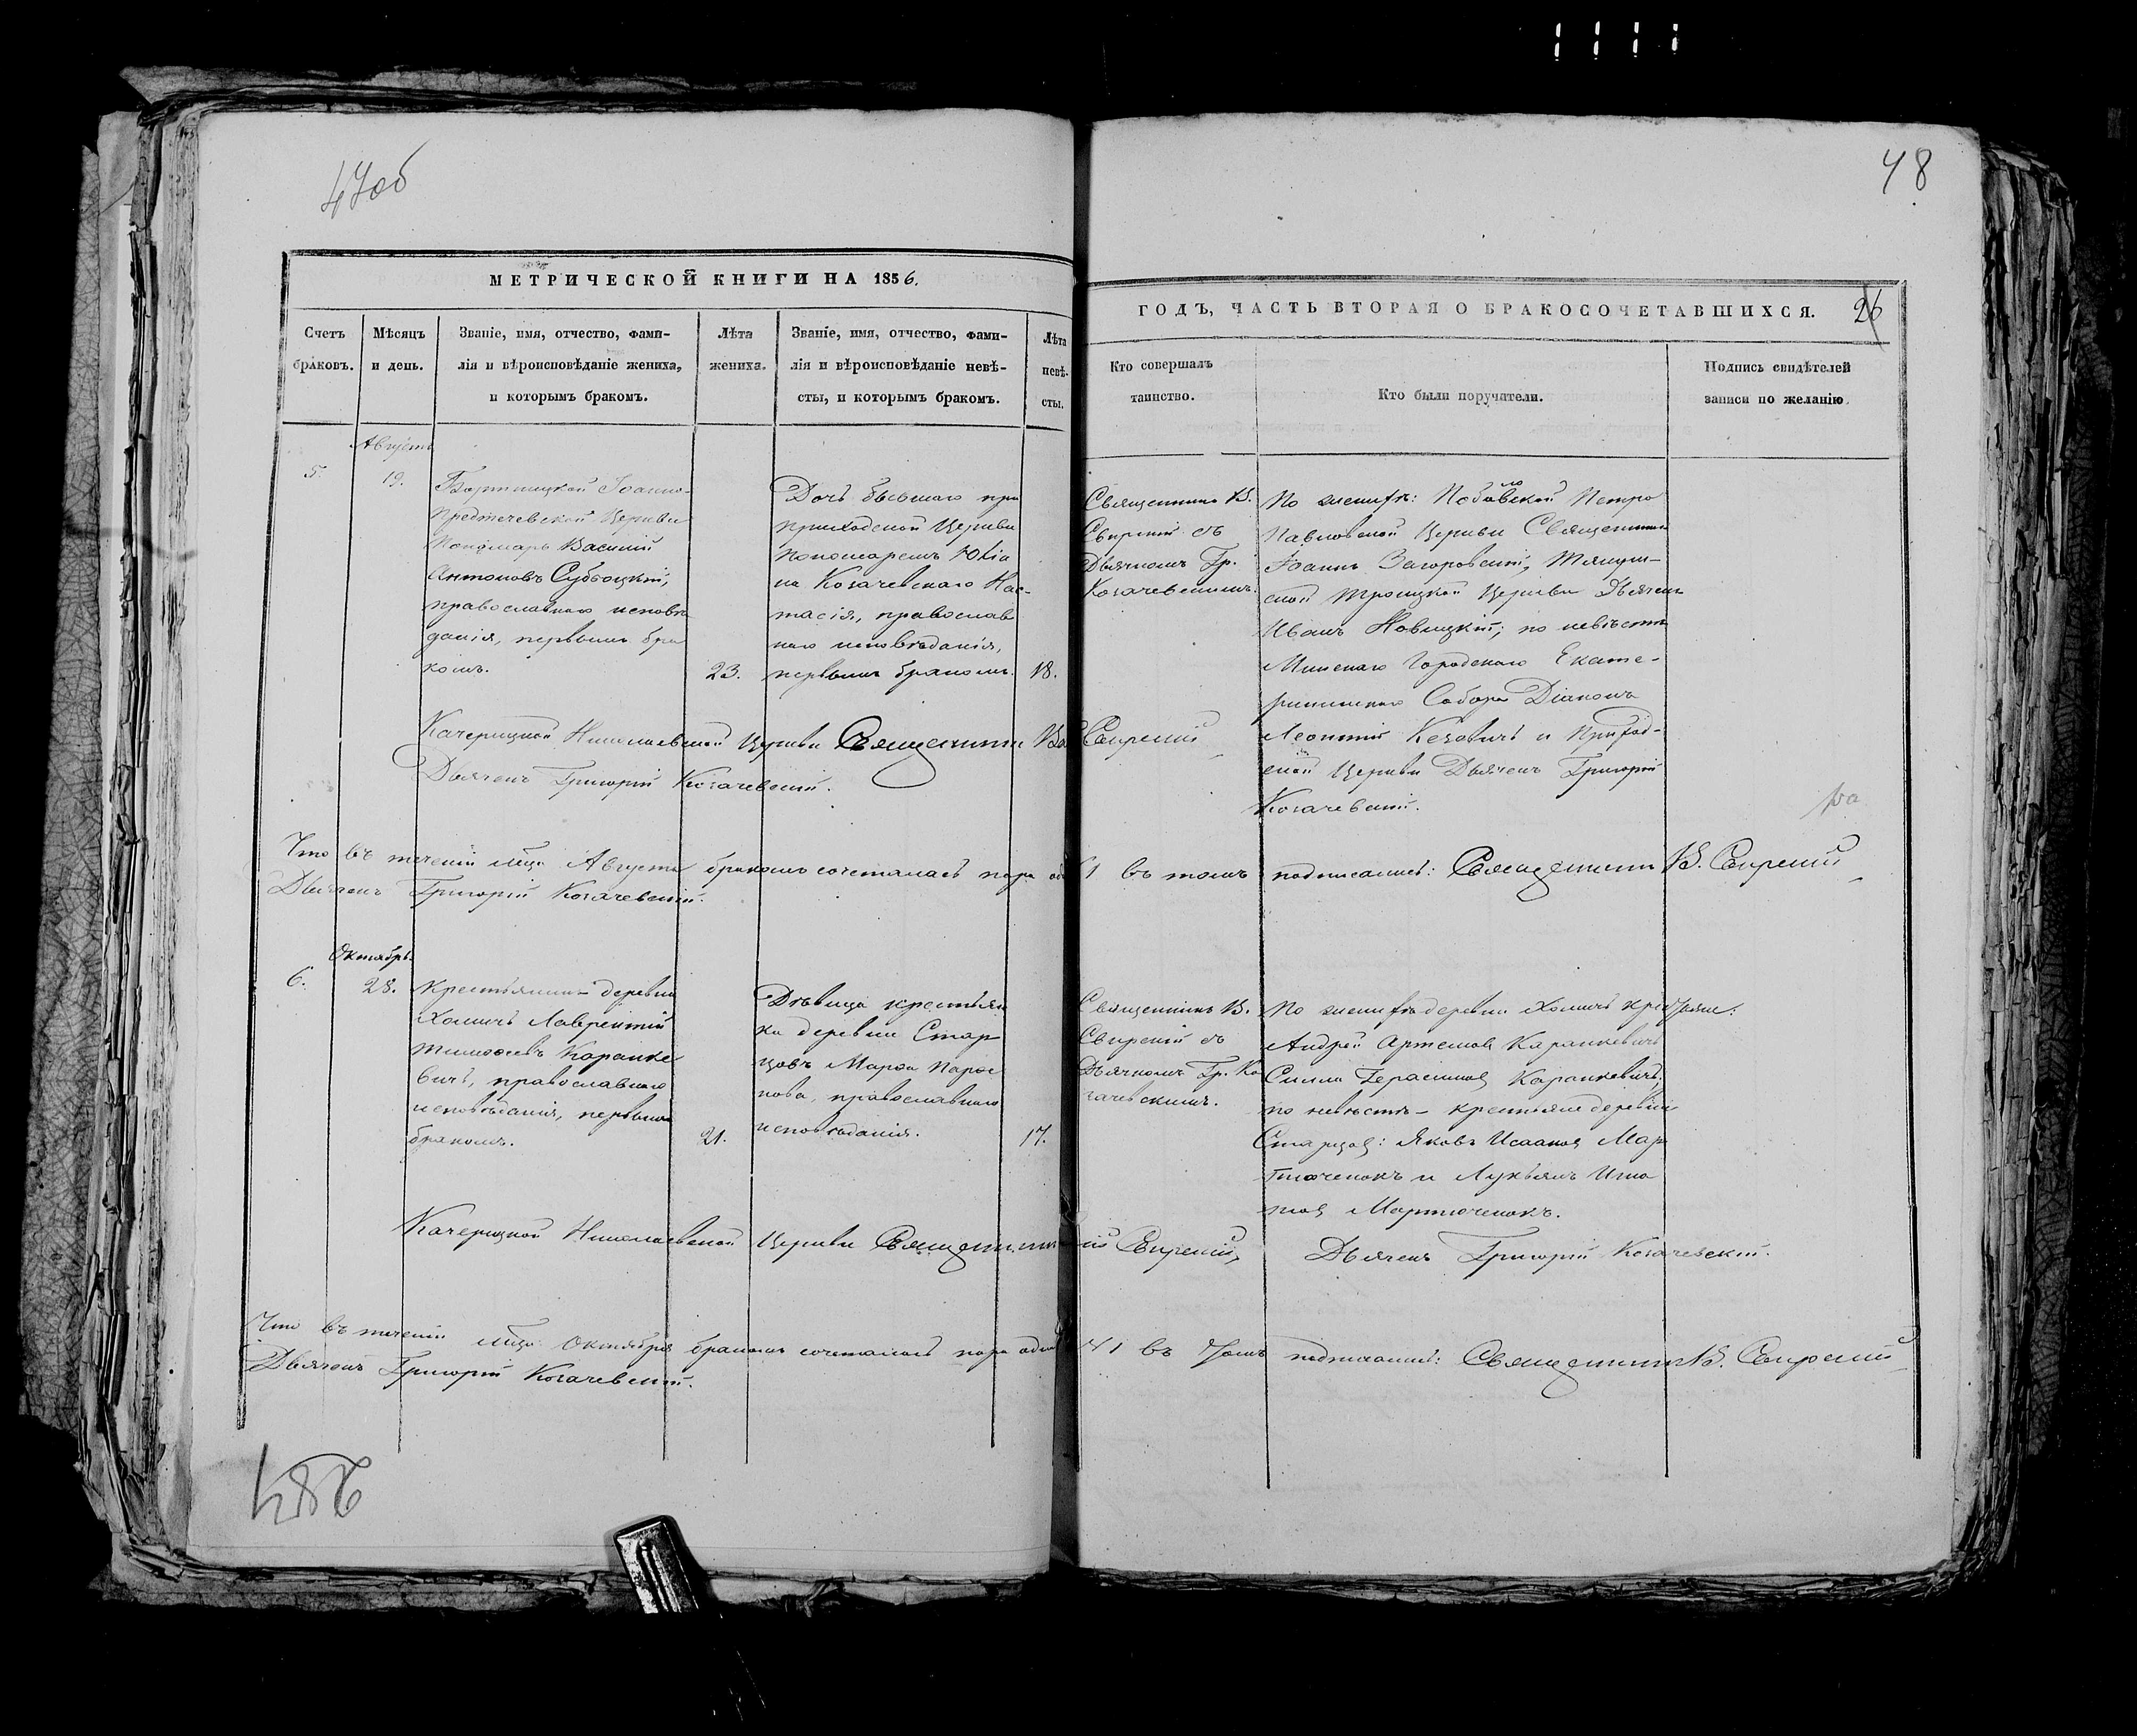 47об
48
МЕТРИЧЕСКОЙ КНИГИ НА 1856.
ГОДЪ, ЧАСТЬ ВТОРАЯ О БРАКОСОЧЕТАВШИХСЯ.
26
Счетъ
браковъ.
Мѣсяцъ
и день.
Званіе, имя, отчество, фами-
лія и вѣроисповѣданіе жениха,
и которымъ бракомъ.
Лѣта
жениха.
Званіе, имя, отчество, фами-
лія и вѣроисповѣданіе невѣ-
сты, и которымъ бракомъ.
Лѣта
невѣ-
сты.
Кто совершалъ
таинство.
Кто были поручатели.
Подпись свидѣтелей
записи по желанію.
Августъ
5.
19.
Іоанно-
Предтечевской Церкви
Пономарь Василій
Антоновъ Субоцкій,
православнаго исповѣ
данія, первымъ бра
комъ.
23.
Дочь бывшаго при
приходской Церкви
Пономаремъ Юліа
на Козачевскаго Нас-
тасія, православ
наго исповѣданія,
первымъ бракомъ.
18.
Священникъ В.
Свирскій съ
Дьячкомъ Гр.
Козачевскимъ.
По женихѣ: Петро
Павловской Церкви Священникъ
Іоаннъ Загоровскій,
ской Троицкой Церкви Дьячекъ
Иванъ Новицкій; по невѣстѣ
Минскаго Городскаго Екате-
рининскаго Собора Діаконъ
Леонтій и Приход-
ской Церкви Дьячекъ Григорій
Козачевскій.
Качерицкой Николаевской Церкви Священникъ Ва Свирскій
Дьячекъ Григорій Козачевскій.
Что въ теченіи мѣсца Августа бракомъ сочеталась пара од 1 въ томъ подписались: Священникъ В. Свирскій
Дьячекъ Григорій Козачевскій.
Октябрь.
6.
28.
Крестьянинъ деревни
Холичъ Лаврентій
Тимоѳеевъ Каранке
вичъ, православнаго
исповѣданія, первымъ
бракомъ.
21.
Дѣвица крестьян
ка деревни Стар
цовъ Марѳа Парѳе
нова, православнаго
исповѣданія.
17.
Священникъ В.
Свирскій съ
Дьячкомъ Гр. Ко
зачевскимъ.
По женихѣ деревни Холичъ крестьяне:
Андрей Артемовъ Каранкевичъ
Герасимовъ Каранкевичъ;
по невѣстѣ – крестьяне деревни
Старцовъ: Яковъ Исааковъ Мар
тюченокъ и Лукьянъ Игна
товъ Мартюченокъ.
Качерицкой Николаевской Церкви Священник ій Свирскій,
Дьячекъ Григорій Козачевскій.
Что въ теченіи мѣсца Октября бракомъ сочеталась пара одна 1 въ томъ подписались: Священникъ В. Свирскій
Дьячекъ Григорій Козачевскій.